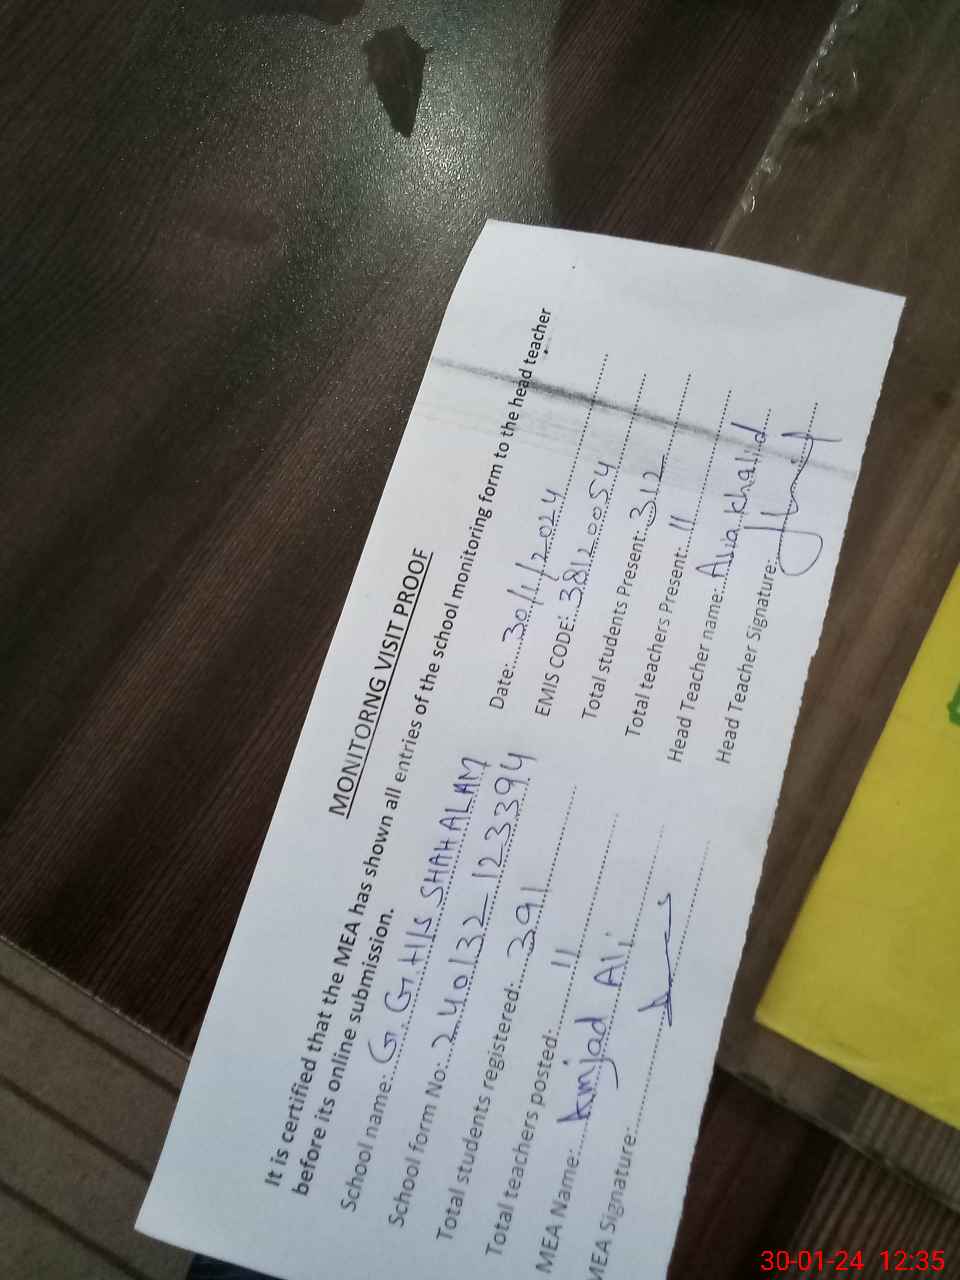 MONITORNG VISIT PROOF
It is certified that the MEA has shown all entries of the school monitoring form to the head teacher
before its online submission.
School name: G.G.HSS SHAHALAM Date: 30/1/2024
School form No: 240132-123394 EMIS CODE: 38120054
Total students registered: 391 Total students Present: 312
Total teachers posted: 11 Total teachers Present: 11
MEA Name: Amjad Ali Head Teacher name: Alia Khalid
MEA Signature: Head Teacher Signature:
30-01-24 12:35